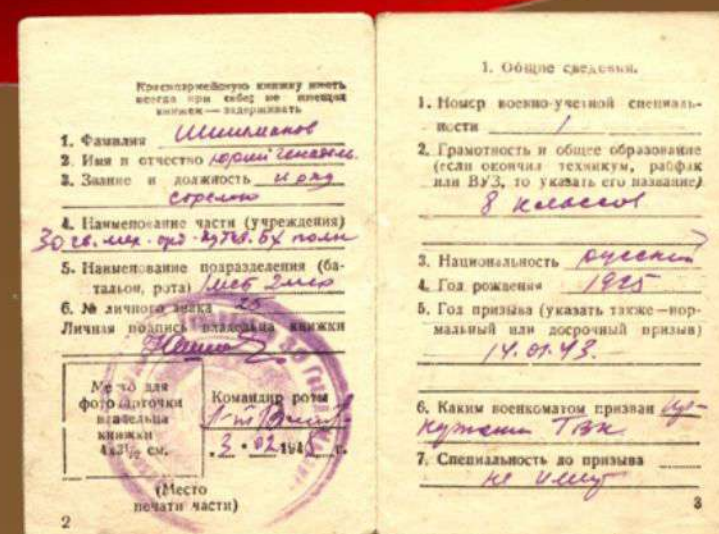 Красноармейскую книжку иметь
всегда при себе; не имеющих
книжек — задерживать
1. Фамилия Шишманов
2. Имя и отчество Юрий
3. Звание и должность
стрелок
4. Наименование части (учреждения)
30 гв. мех.
5. Наименование подразделения (ба-
тальон, рота)
6. № личного знака 25
Личная подпись владельца книжки
Место для
фотокарточки
владельца
книжки
4х3½ см.
Командир роты
3 • 02 194 г.
(Место
печати части)
2
1. Общие сведения.
1. Номер военно-учетной специаль-
ности 1
2. Грамотность и общее образование
(если окончил техникум, рабфак
или ВУЗ, то указать его название)
8 классов
3. Национальность русский
4. Год рождения 1925
5. Год призыва (указать также—нор-
мальный или досрочный призыв)
14.01.43.
6. Каким военкоматом призван
ГВК
7. Специальность до призыва
не имеет
3